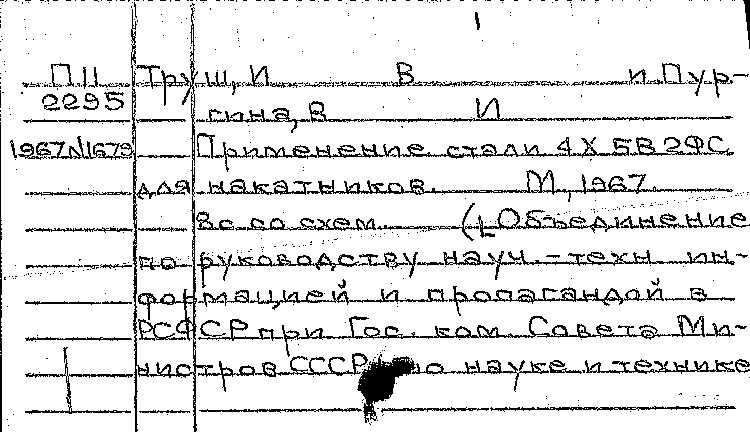 1
ПII Труш, И В и Пур-
2295 гина, В И
1967N1679 Применение стали 4Х5В2ФС
для накатников. М., 1967.
8с со схем. (Объединение
по руководству науч.-техн. ин-
формацией и пропагандой в
РСФСР при Гос. ком. Совета Ми-
нистров СССР по науке и технике